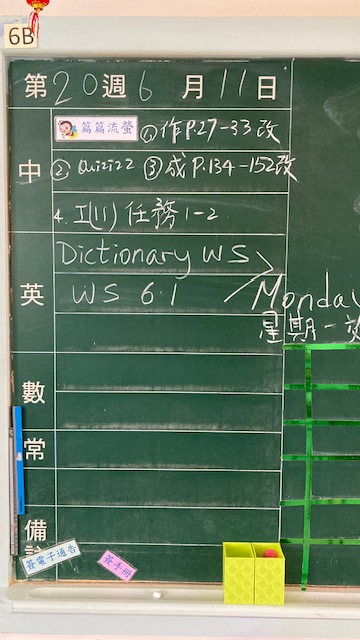 6B
第20週6月11日
中
篇篇流螢 ①作P.27-33改
② Quizizz ③成P.134-152改
4. I(11) 任務1-2
英
Dictionary WS
WS 6.1
Monday
星期一
數
常
備
簽電子通告
簽手冊